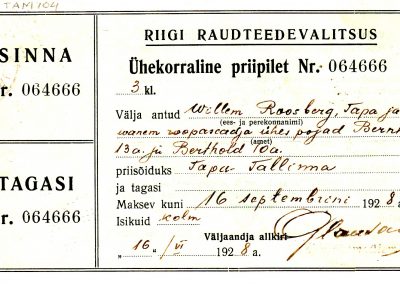 TAM 104
SINNA
r. 064666
TAGASI
Nr. 064666
RIIGI RAUDTEEDEVALITSUS
Ühekorraline priipilet Nr. 064666
3 kl.
Välja antud Willem Roosberg, Tapa ja
(ees- ja perekonnanimi)
wanem roopaseadja ühes pojad Bernh
(amet)
13 a. ja Berthold 10 a.
priisõiduks Tapa-Tallinna
ja tagasi
Maksev kuni 16 septembrini 1928 a
Isikuid kolm
Väljaandja allkiri
„16“ /VI 1928 a.